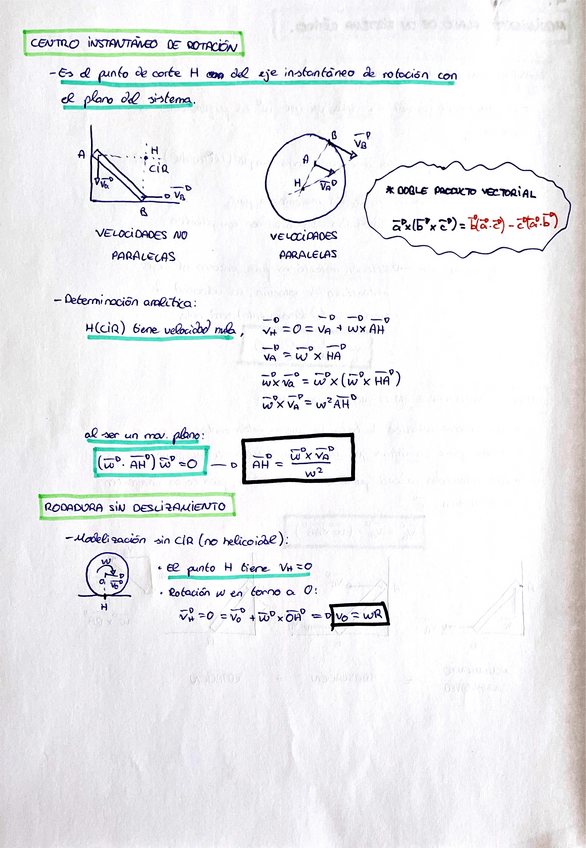 CENTRO INSTANTÁNEO DE ROTACIÓN
- Es el punto de corte H del eje instantáneo de rotación con
el plano del sistema.
A
H
CIR
V⃗A
B
V⃗B
VELOCIDADES NO
PARALELAS
B
V⃗B
A
V⃗A
H
VELOCIDADES
PARALELAS
* DOBLE PRODUCTO VECTORIAL
a⃗ x (b⃗ x c⃗) = b⃗(a⃗·c⃗) - c⃗(a⃗·b⃗)
- Determinación analítica:
H(CIR) tiene velocidad nula, v⃗H = 0 = v⃗A + w⃗ x AH⃗
v⃗A = w⃗ x HA⃗
w⃗ x v⃗a = w⃗ x (w⃗ x HA⃗)
w⃗ x v⃗A = w² AH⃗
al ser un mov. plano:
(w⃗ · AH⃗) w⃗ = 0 → AH⃗ = (w⃗ x v⃗A) / w²
RODADURA SIN DESLIZAMIENTO
- Modelización sin CIR (no helicoidal):
w
v⃗0
H
· El punto H tiene VH = 0
· Rotación w en torno a O:
v⃗H = 0 = v⃗0 + w⃗ x OH⃗ ⇒ v0 = wR